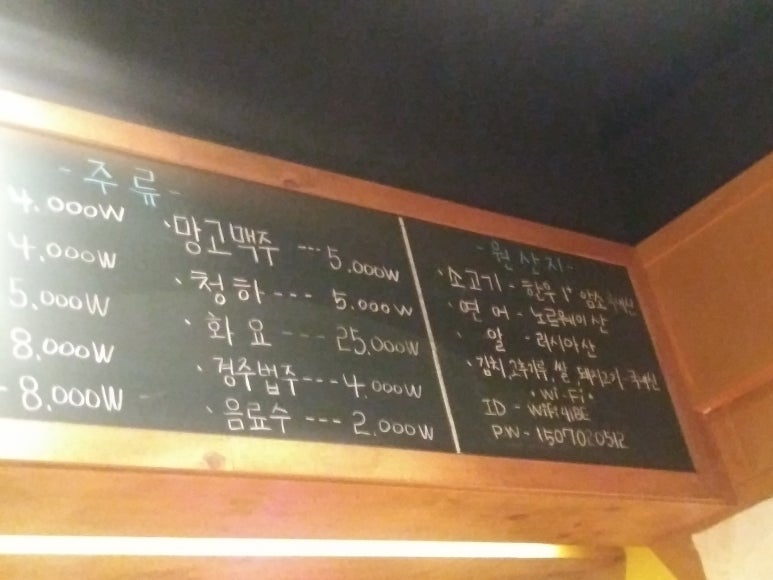 - 주류 -
4.000W
4.000W
5.000W
8.000W
- 8.000W
· 망고맥주 --- 5.000W
· 청하 --- 5.000W
· 화요 --- 25.000W
· 경주법주 --- 4.000W
· 음료수 --- 2.000W
- 원산지 -
· 소고기 - 한우 1⁺ 암소 국내산
· 연어 - 노르웨이산
· 알 - 러시아산
· 김치, 고추가루, 쌀, 돼지고기 - 국내산
· Wi-Fi ·
ID -
PW - 1507020512